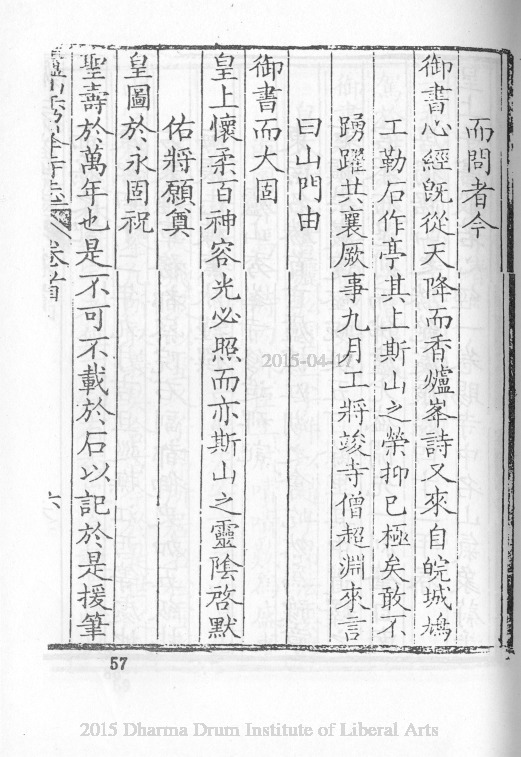 而問者今
御書心經既從天降而香爐峯詩又來自皖城鳩
工勒石作亭其上斯山之榮抑已極矣敢不
踴躍共襄厥事九月工將竣寺僧超淵來言
曰山門由
御書而大固
皇上懷柔百神容光必照而亦斯山之靈陰啓默
佑將願奠
皇圖於永固祝
聖壽於萬年也是不可不載於石以記於是援筆
寺志 卷首
六
57
2015-04-17
2015 Dharma Drum Institute of Liberal Arts